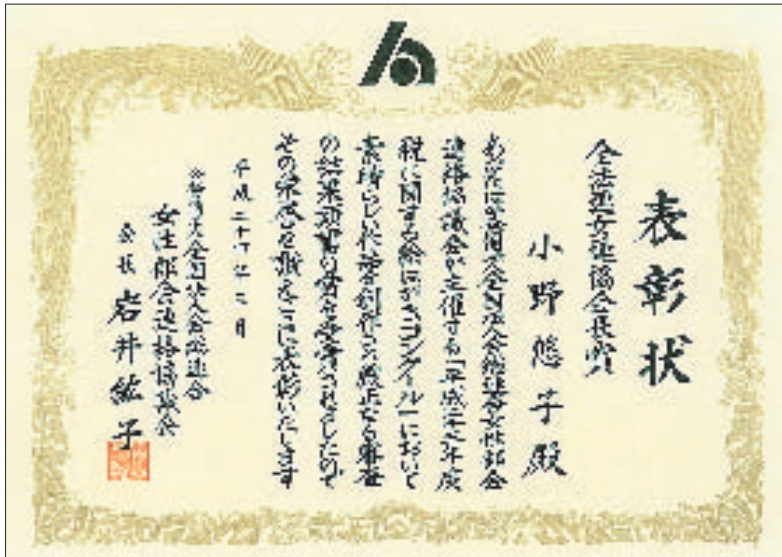 表彰状
全法連女連協会長賞
小野悠子殿
あなたは財団法人全国法人会総連合女性部会
連絡協議会が主催する「平成二十三年度
税に関する絵はがきコンクール」において
素晴らしい作品を創作され厳正なる審査
の結果頭書の賞を受賞されましたので
その栄誉を讃えここに表彰いたします
平成二十四年三月
財団法人全国法人会総連合
女性部会連絡協議会
会長 岩井紘子